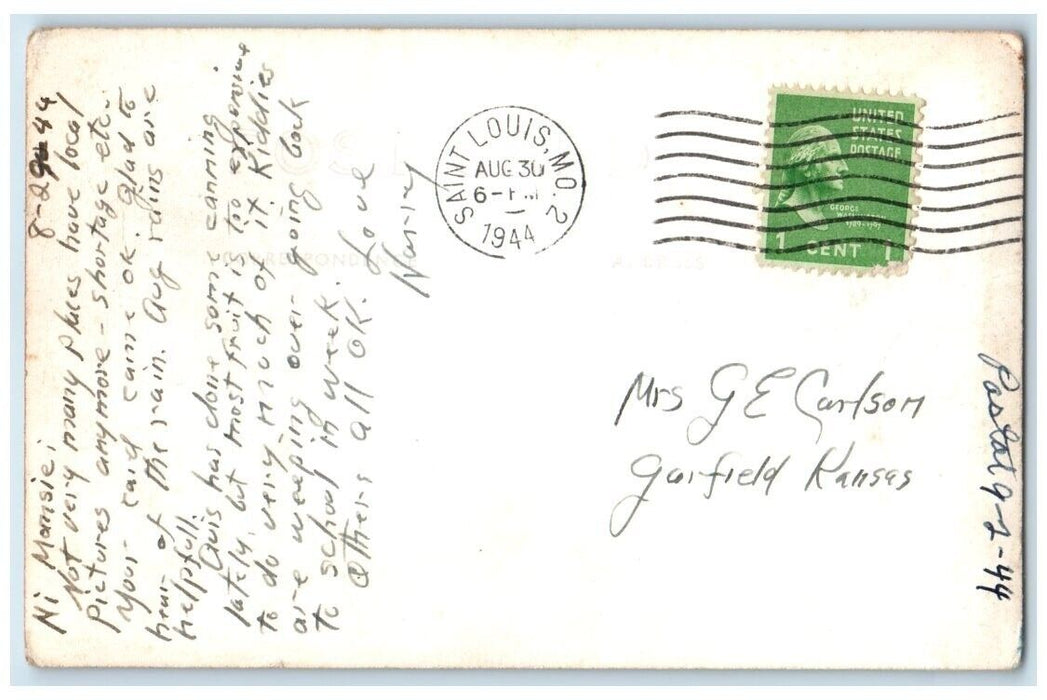 8-29-44
Hi Momsie;
Not very many places have local
pictures anymore - shortage etc.
Your card came ok. Glad to
hear of the rain. Aug rains are
helpfull.
Avis has done some canning
lately, but most fruit is too expensive
to do very much of it. Kiddies
are weeping over going back
to school in week.
Others all OK. Love
SAINT LOUIS, MO. 2
AUG 30
6-PM
1944
UNITED
STATES
POSTAGE
GEORGE
WASHINGTON
1789-1797
1 CENT 1
CORRESPONDENCE
ADDRESS
Mrs G E Carlson
Garfield Kansas
Postal 9-2-44